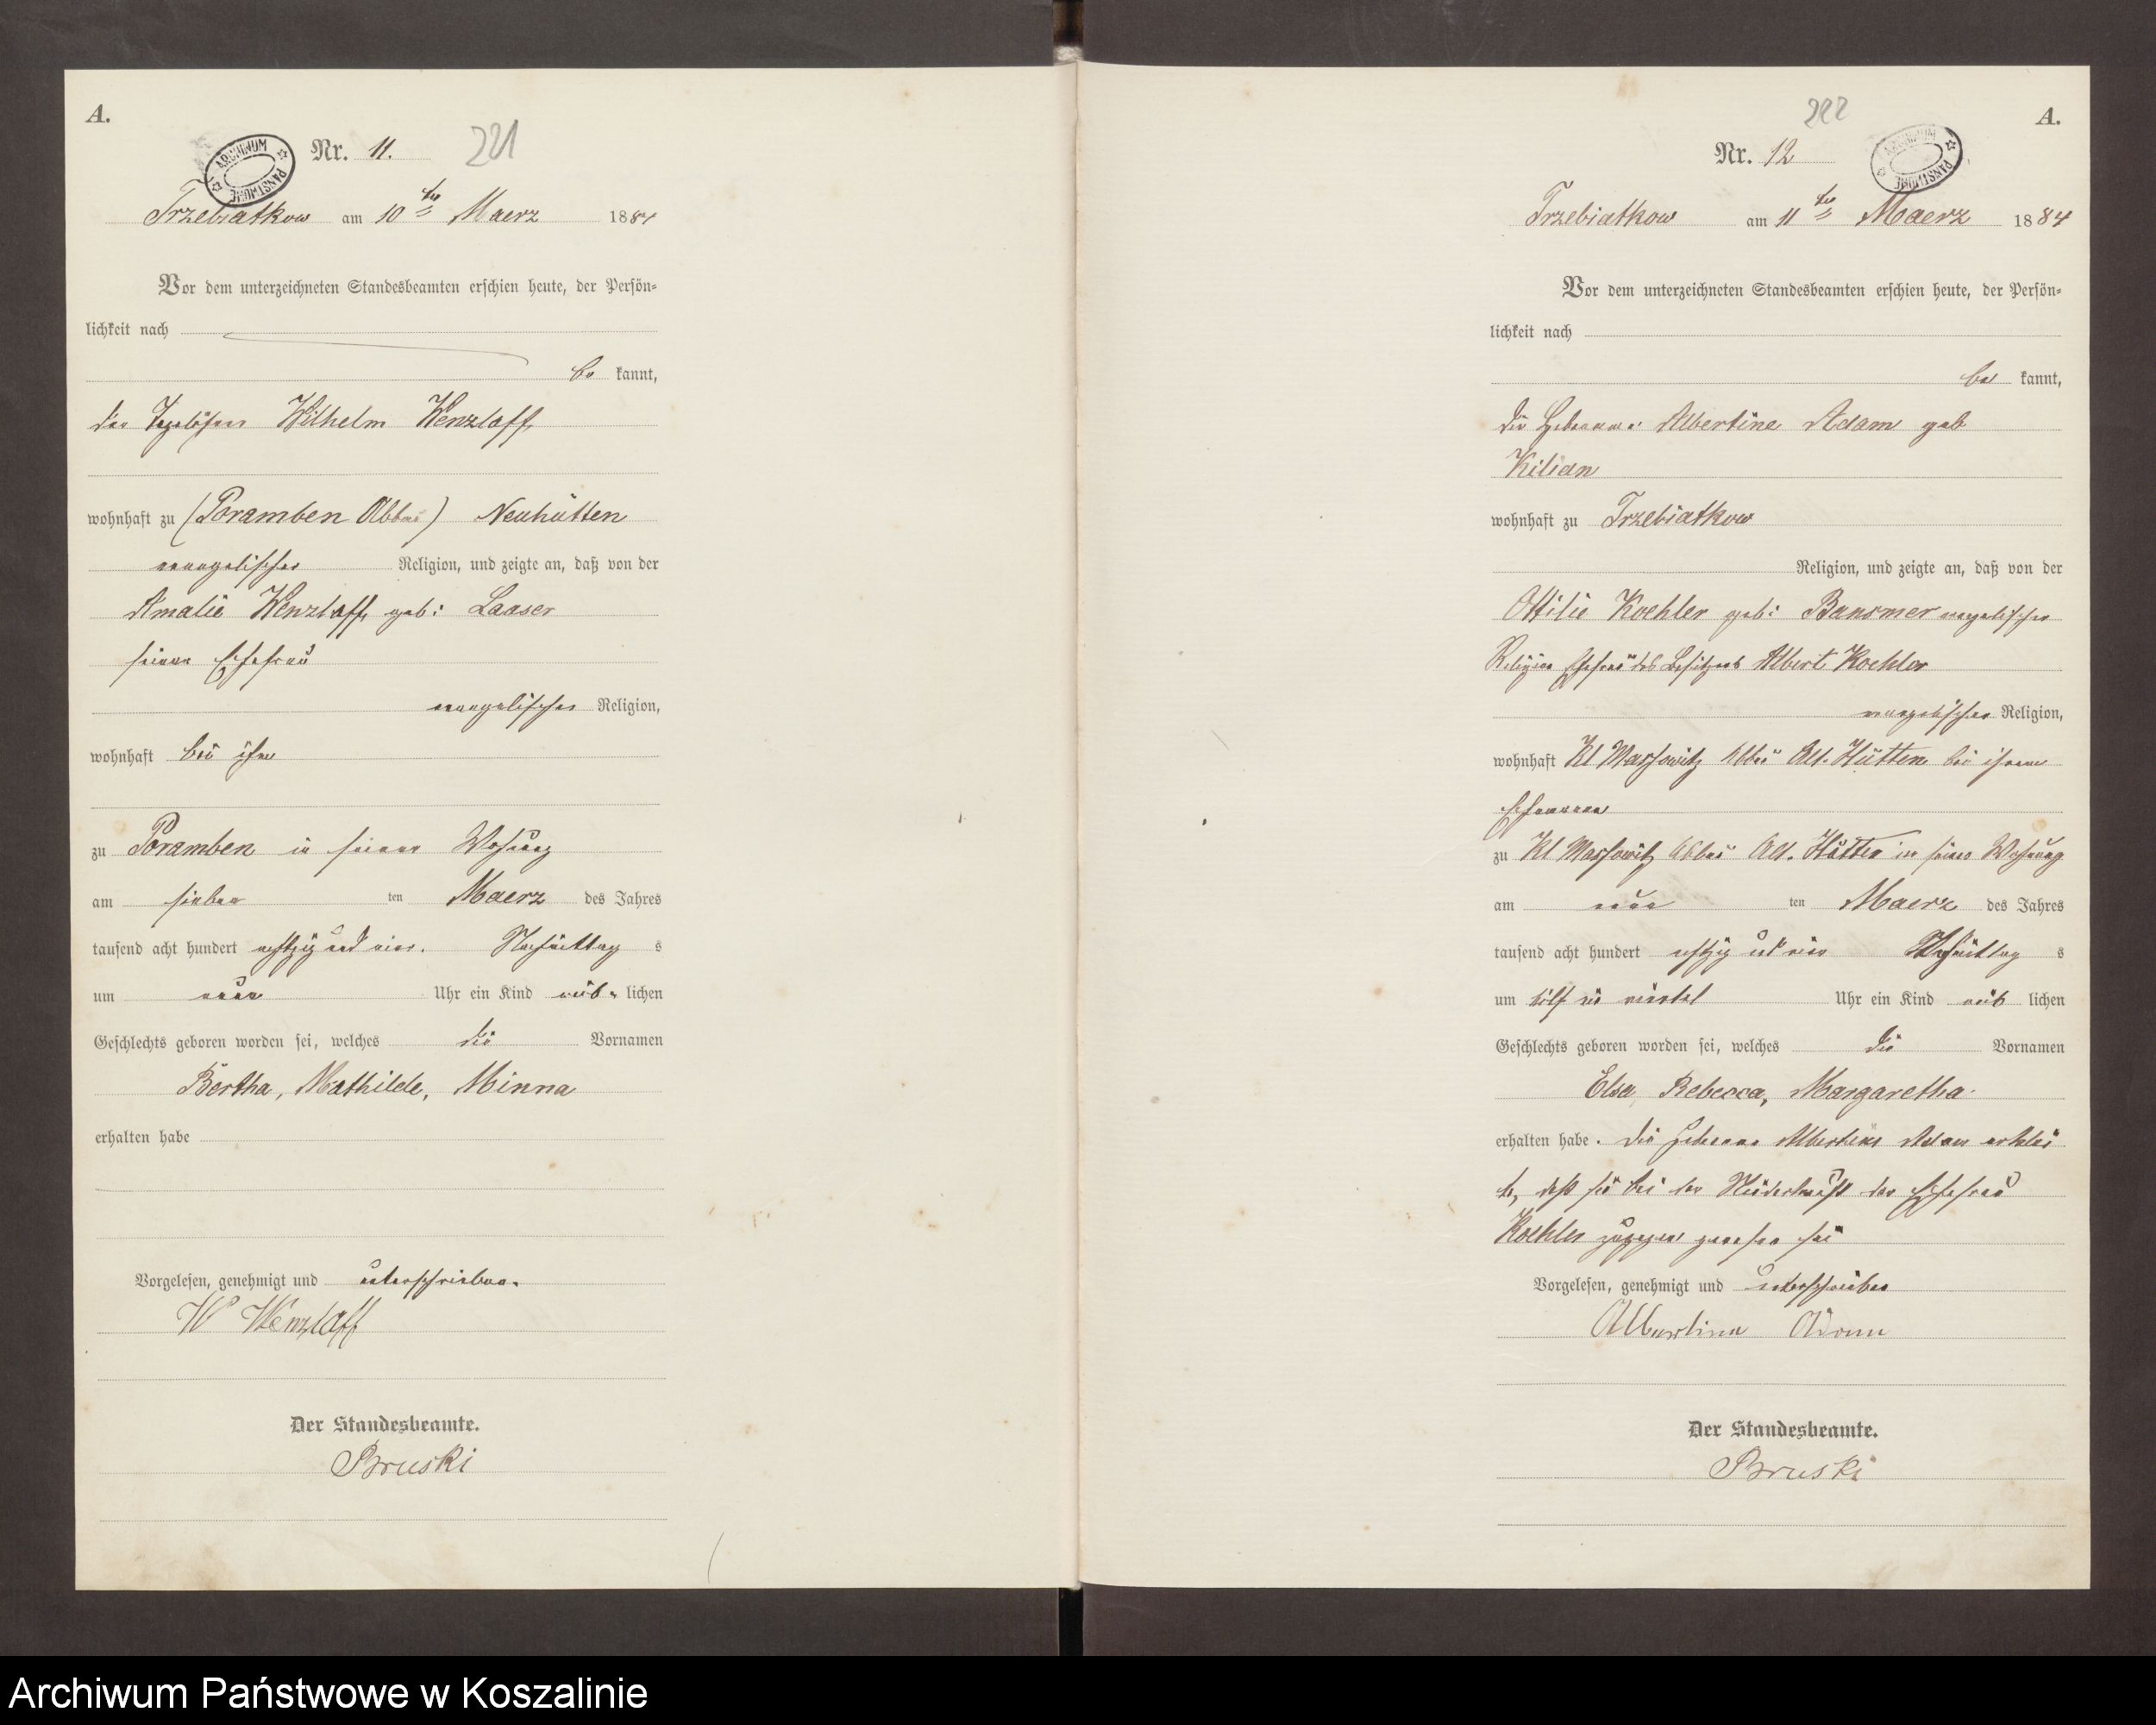 A.
Nr. 11.
221
ARCHIWUM PAŃSTWOWE
Trzebiatkow am 10ten Maerz 1884
Vor dem unterzeichneten Standesbeamten erschien heute, der Persön-
lichkeit nach
be kannt,
der Tagelöhner Wilhelm Wenzlaff
wohnhaft zu (Poramben Abbau) Neuhütten
evangelischer Religion, und zeigte an, daß von der
Amalie Wenzlaff geb: Laaser
seiner Ehefrau
evangelischer Religion,
wohnhaft bei ihm
zu Poramben in seiner Wohnung
am sieben ten Maerz des Jahres
tausend acht hundert achtzig und vier. Nachmittag s
um neun Uhr ein Kind weib- lichen
Geschlechts geboren worden sei, welches die Vornamen
Bertha, Mathilde, Minna
erhalten habe
Vorgelesen, genehmigt und unterschrieben.
W Wenzlaff
Der Standesbeamte.
Bruski
222
A.
Nr. 12
ARCHIWUM PAŃSTWOWE
Trzebiatkow am 11ten Maerz 1884
Vor dem unterzeichneten Standesbeamten erschien heute, der Persön-
lichkeit nach
be kannt,
die Hebamme Albertine Adam geb
Kilian
wohnhaft zu Trzebiatkow
Religion, und zeigte an, daß von der
Ottilie Koehler geb: Bansmer evangelischer
Religion Ehefrau des Besitzers Albert Koehler
evangelischer Religion,
wohnhaft Kl Massowitz Abbau Alt. Hütten bei ihrem
Ehemann
zu Kl Massowitz Abbau Alt. Hütten in seiner Wohnung
am neun ten Maerz des Jahres
tausend acht hundert achtzig und vier s
um ein viertel Uhr ein Kind weib lichen
Geschlechts geboren worden sei, welches die Vornamen
Elsa Rebecca, Margaretha
erhalten habe. Die Hebamme Albertine Adam erklär
te, daß sie bei der Niederkunft der Ehefrau
Koehler zugegen gewesen sei
Vorgelesen, genehmigt und unterschrieben
Albertine Adam
Der Standesbeamte.
Bruski
Archiwum Państwowe w Koszalinie